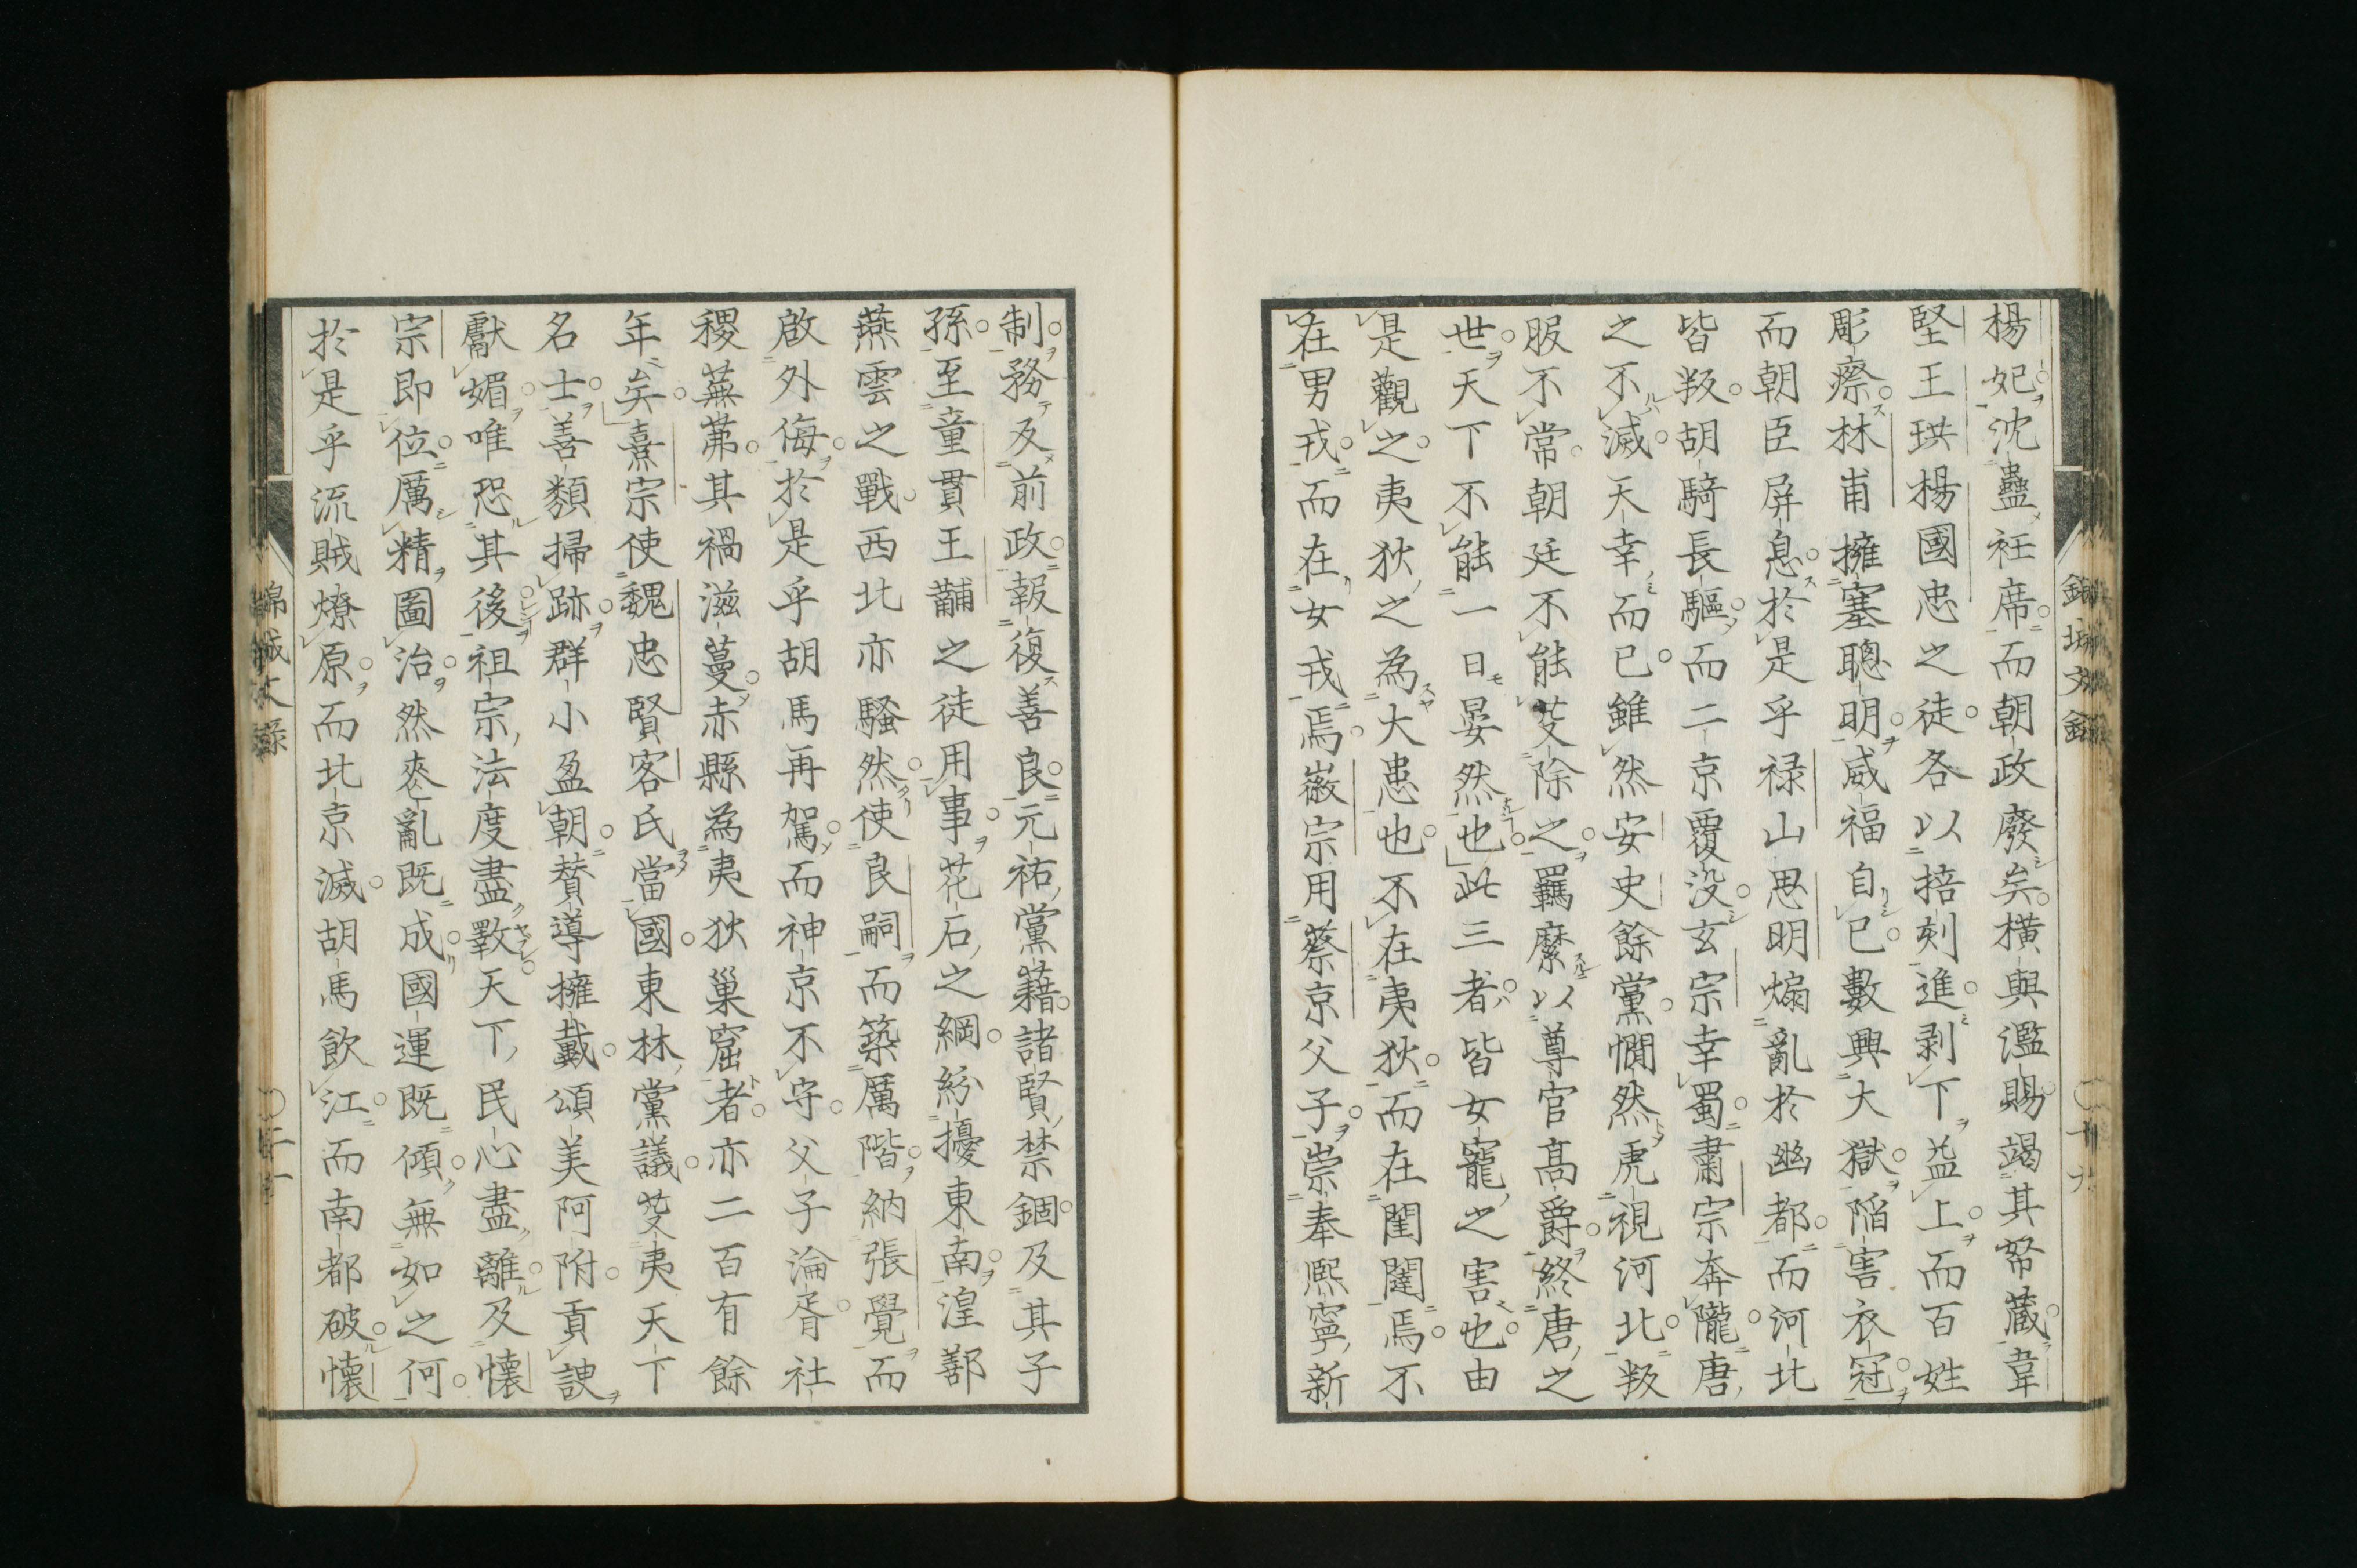 楊妃沈蠱衽席而朝政廢矣横與濫賜竭其帑藏韋
堅王珙楊國忠之徒各以掊剋進剥下益上而百姓
彫瘵林甫擁塞聰明威福自已數興大獄陥害衣冠
而朝臣屏息於是乎禄山思明煽亂於幽都而河北
皆叛胡騎長驅而二京覆没玄宗幸蜀肅宗奔隴唐
之不滅天幸而已雖然安史餘黨憪然虎視河北叛
服不常朝廷不能芟除之羈縻以尊官髙爵終唐之
世天下不能一日晏然也此三者皆女寵之害也由
是觀之夷狄之為大患也不在夷狄而在閨闥焉不
在男戎而在女戎焉徽宗用蔡京父子崇奉熈寧新
制務反前政報復善良元祐黨藉諸賢禁錮及其子
孫至童貫王黼之徒用事花石之綱紛擾東南湟鄯
燕雲之戰西北亦騷然使良嗣而築厲階納張覺而
啟外侮於是乎胡馬再駕而神京不守父子淪胥社
稷蕪茀其禍滋蔓赤縣為夷狄巢窟者亦二百有餘
年矣熹宗使魏忠賢客氏當國東林黨議芟夷天下
名士善類掃跡群小盈朝賛導擁戴頌美阿附貢諛
獻媚唯恐其後祖宗法度盡斁天下民心盡離及懐
宗即位厲精圖治然來亂既成國運既傾無如之何
於是乎流賊燎原而北京滅胡馬飲江而南都破懐
錦城文録